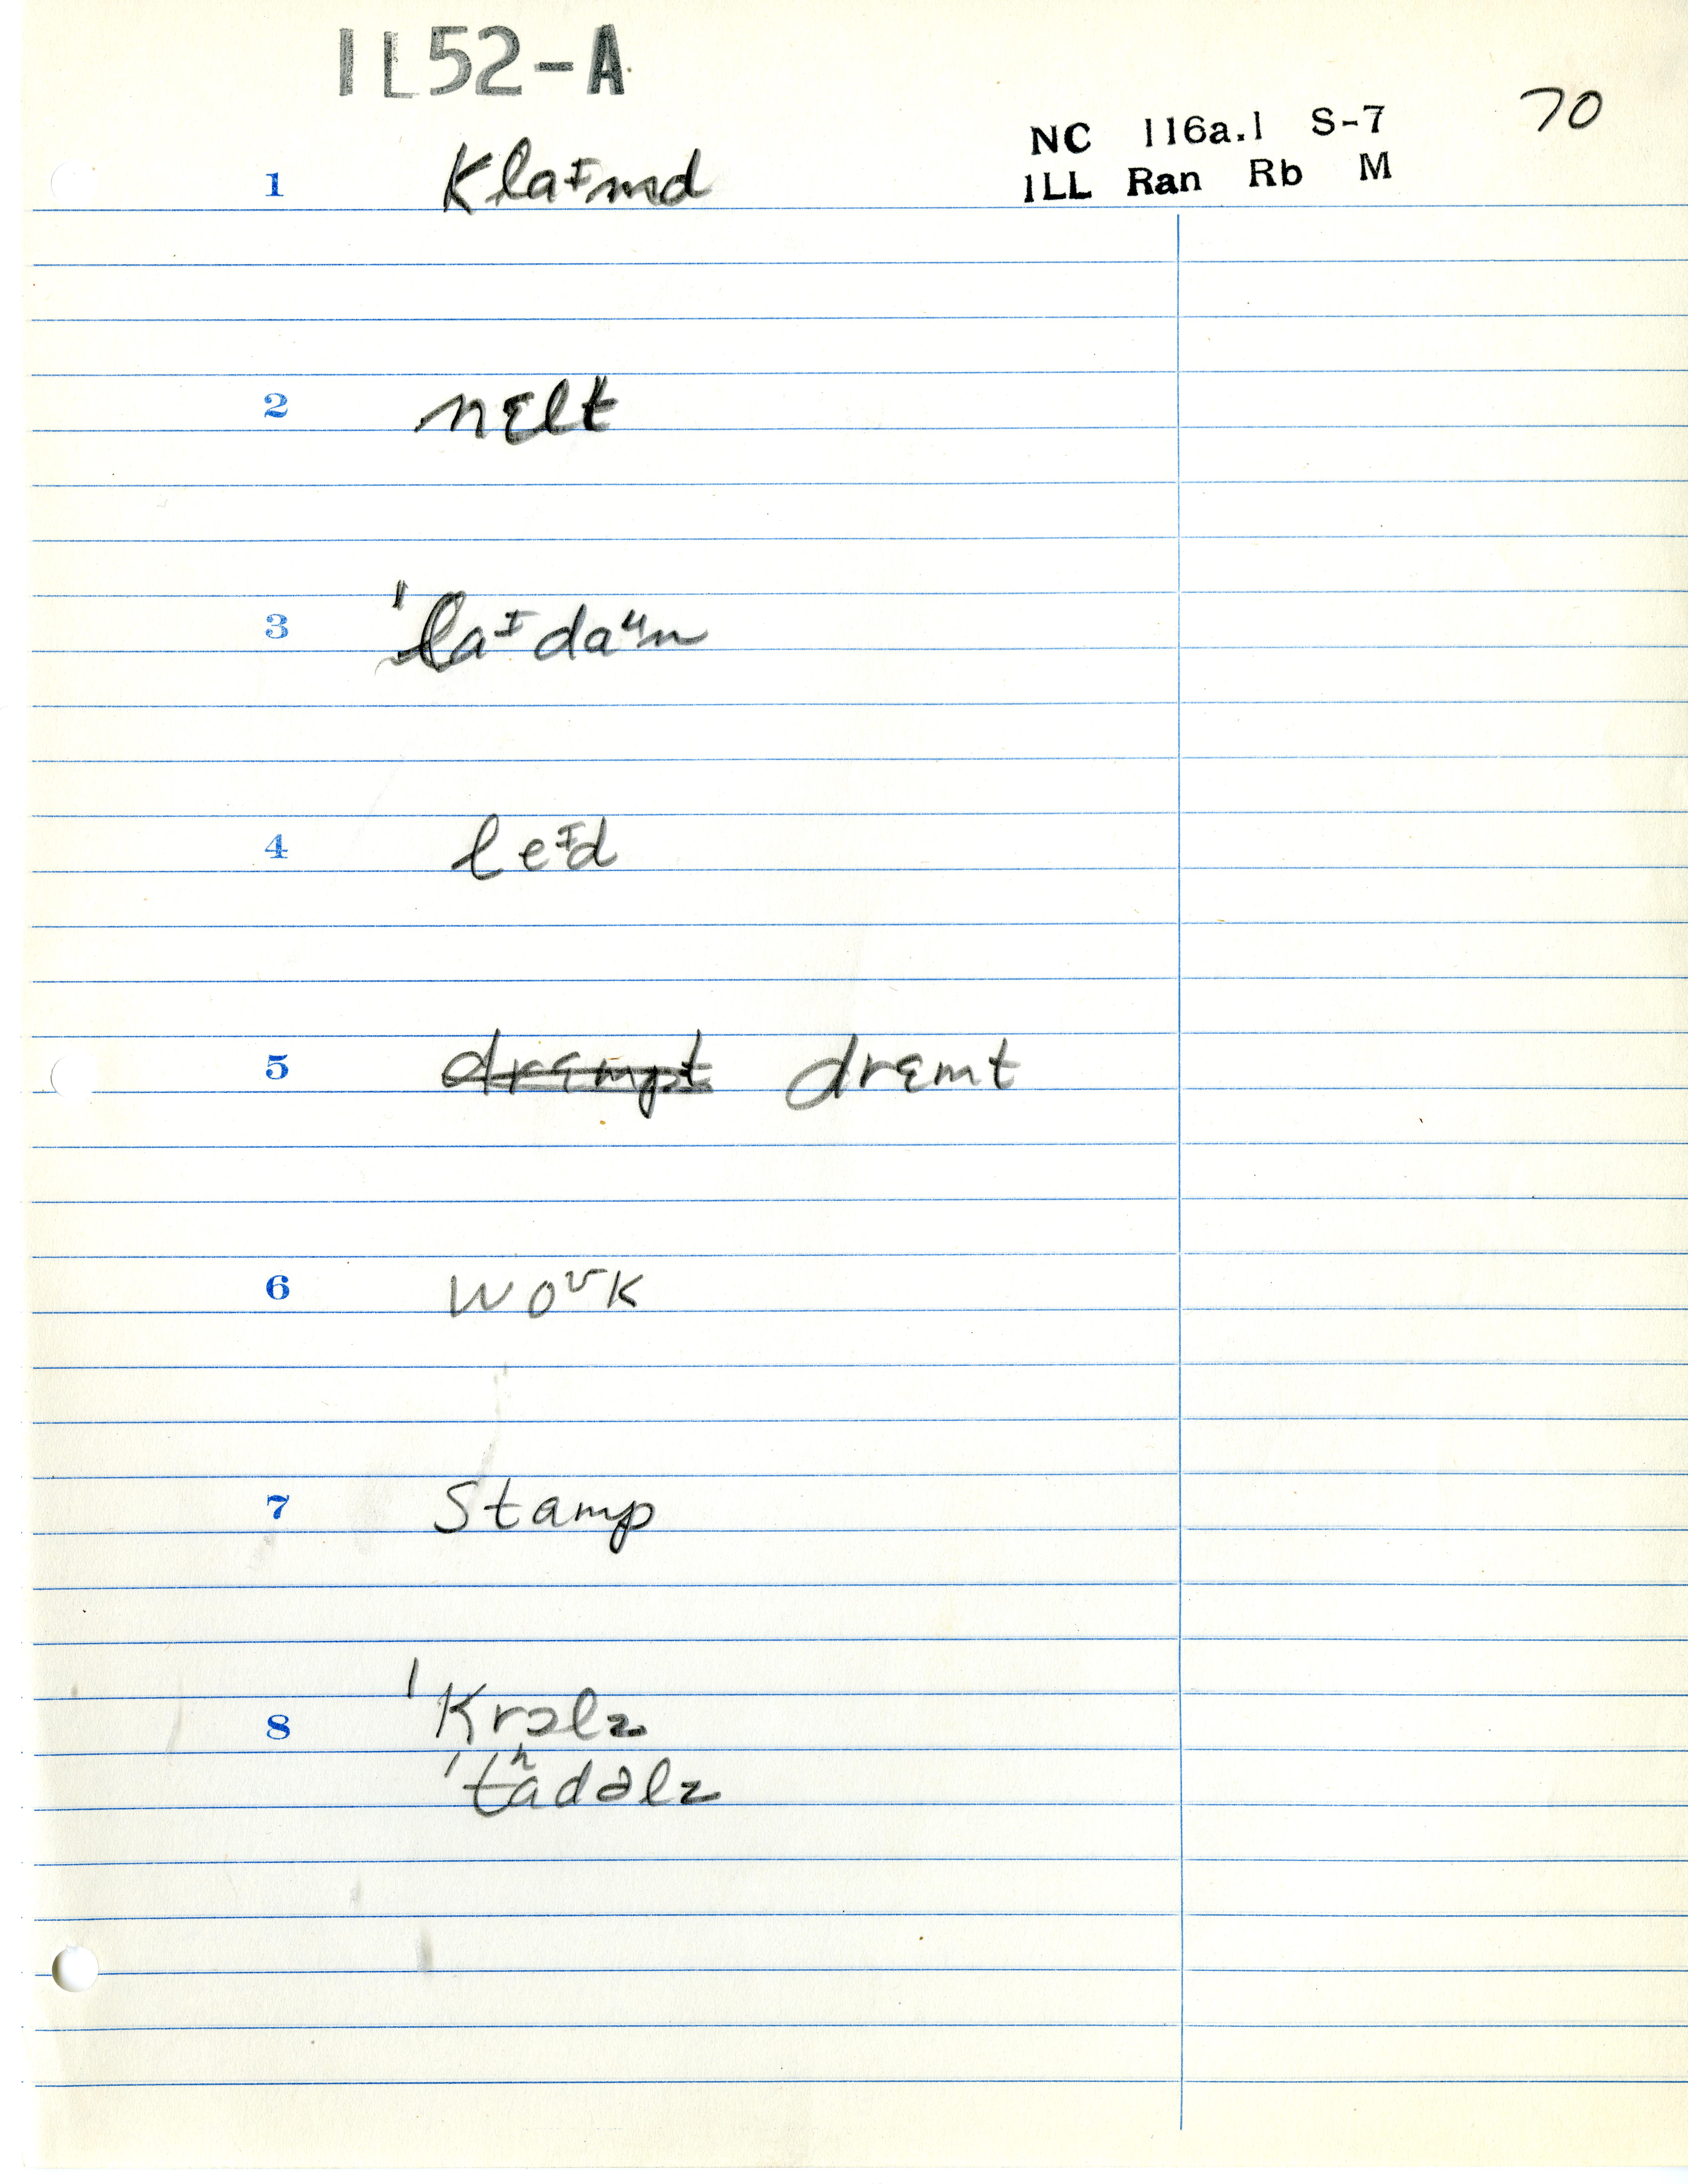 IL52-A
70
NC 116a.1 S-7
ILL Ran Rb M
1 Klaᶦmd
2 nɛlt
3 ˈlaᶦdaᵘn
4 leᶦd
5 drɛmpt drɛmt
6 woᶷk
7 Stamp
8 ˈKrɔlz
ˈtʰadəlz